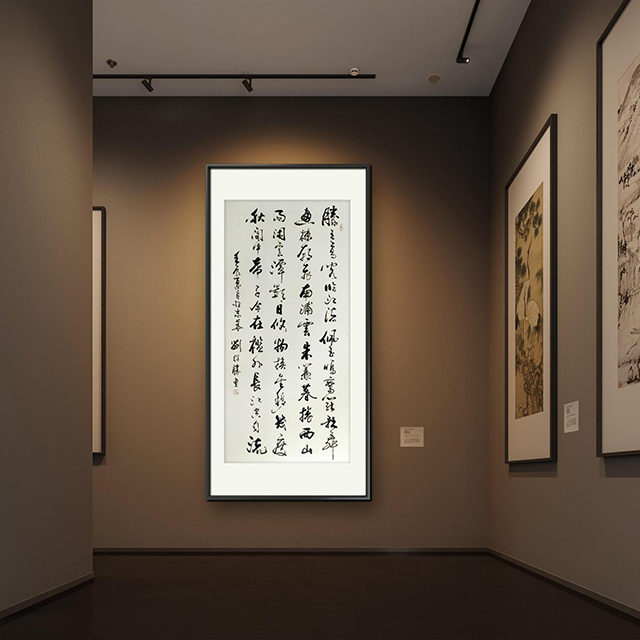 滕王高閣臨江渚佩玉鳴鸞罷歌舞
畫棟朝飛南浦雲朱簾暮捲西山
雨閑雲潭影日悠物換星移幾度
秋閣中帝子今在檻外長江空自流
壬辰夏月 劉